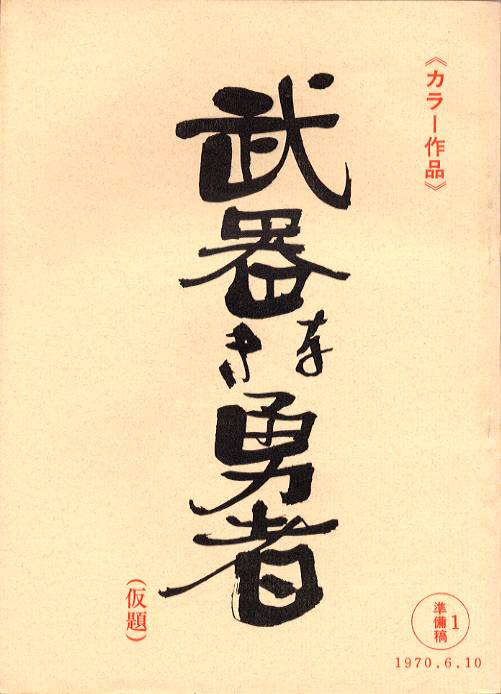 《カラー作品》
武器なき勇者
(仮題)
準備稿
1
1970.6.10